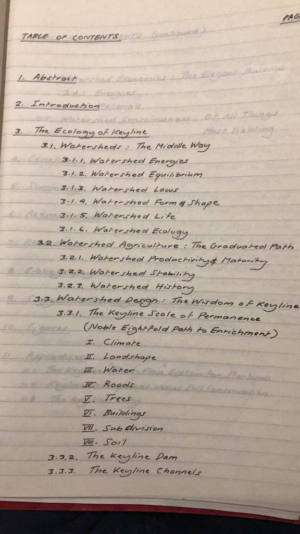 PAG
TABLE OF CONTENTS
1. Abstract
2. Introduction
3. The Ecology of Keyline
3.1. Watersheds : The Middle Way
3.1.1. Watershed Energies
3.1.2. Watershed Equilibrium
3.1.3. Watershed Laws
3.1.4. Watershed Form & Shape
3.1.5. Watershed Life
3.1.6. Watershed Ecology
3.2. Watershed Agriculture : The Graduated Path
3.2.1. Watershed Productivity & Maturity
3.2.2. Watershed Stability
3.2.3. Watershed History
3.3. Watershed Design : The Wisdom of Keyline
3.3.1. The Keyline Scale of Permanence
(Noble Eightfold Path to Enrichment)
I. Climate
II. Landshape
III. Water
IV. Roads
V. Trees
VI. Buildings
VII. Subdivision
VIII. Soil
3.3.2. The Keyline Dam
3.3.3. The Keyline Channels